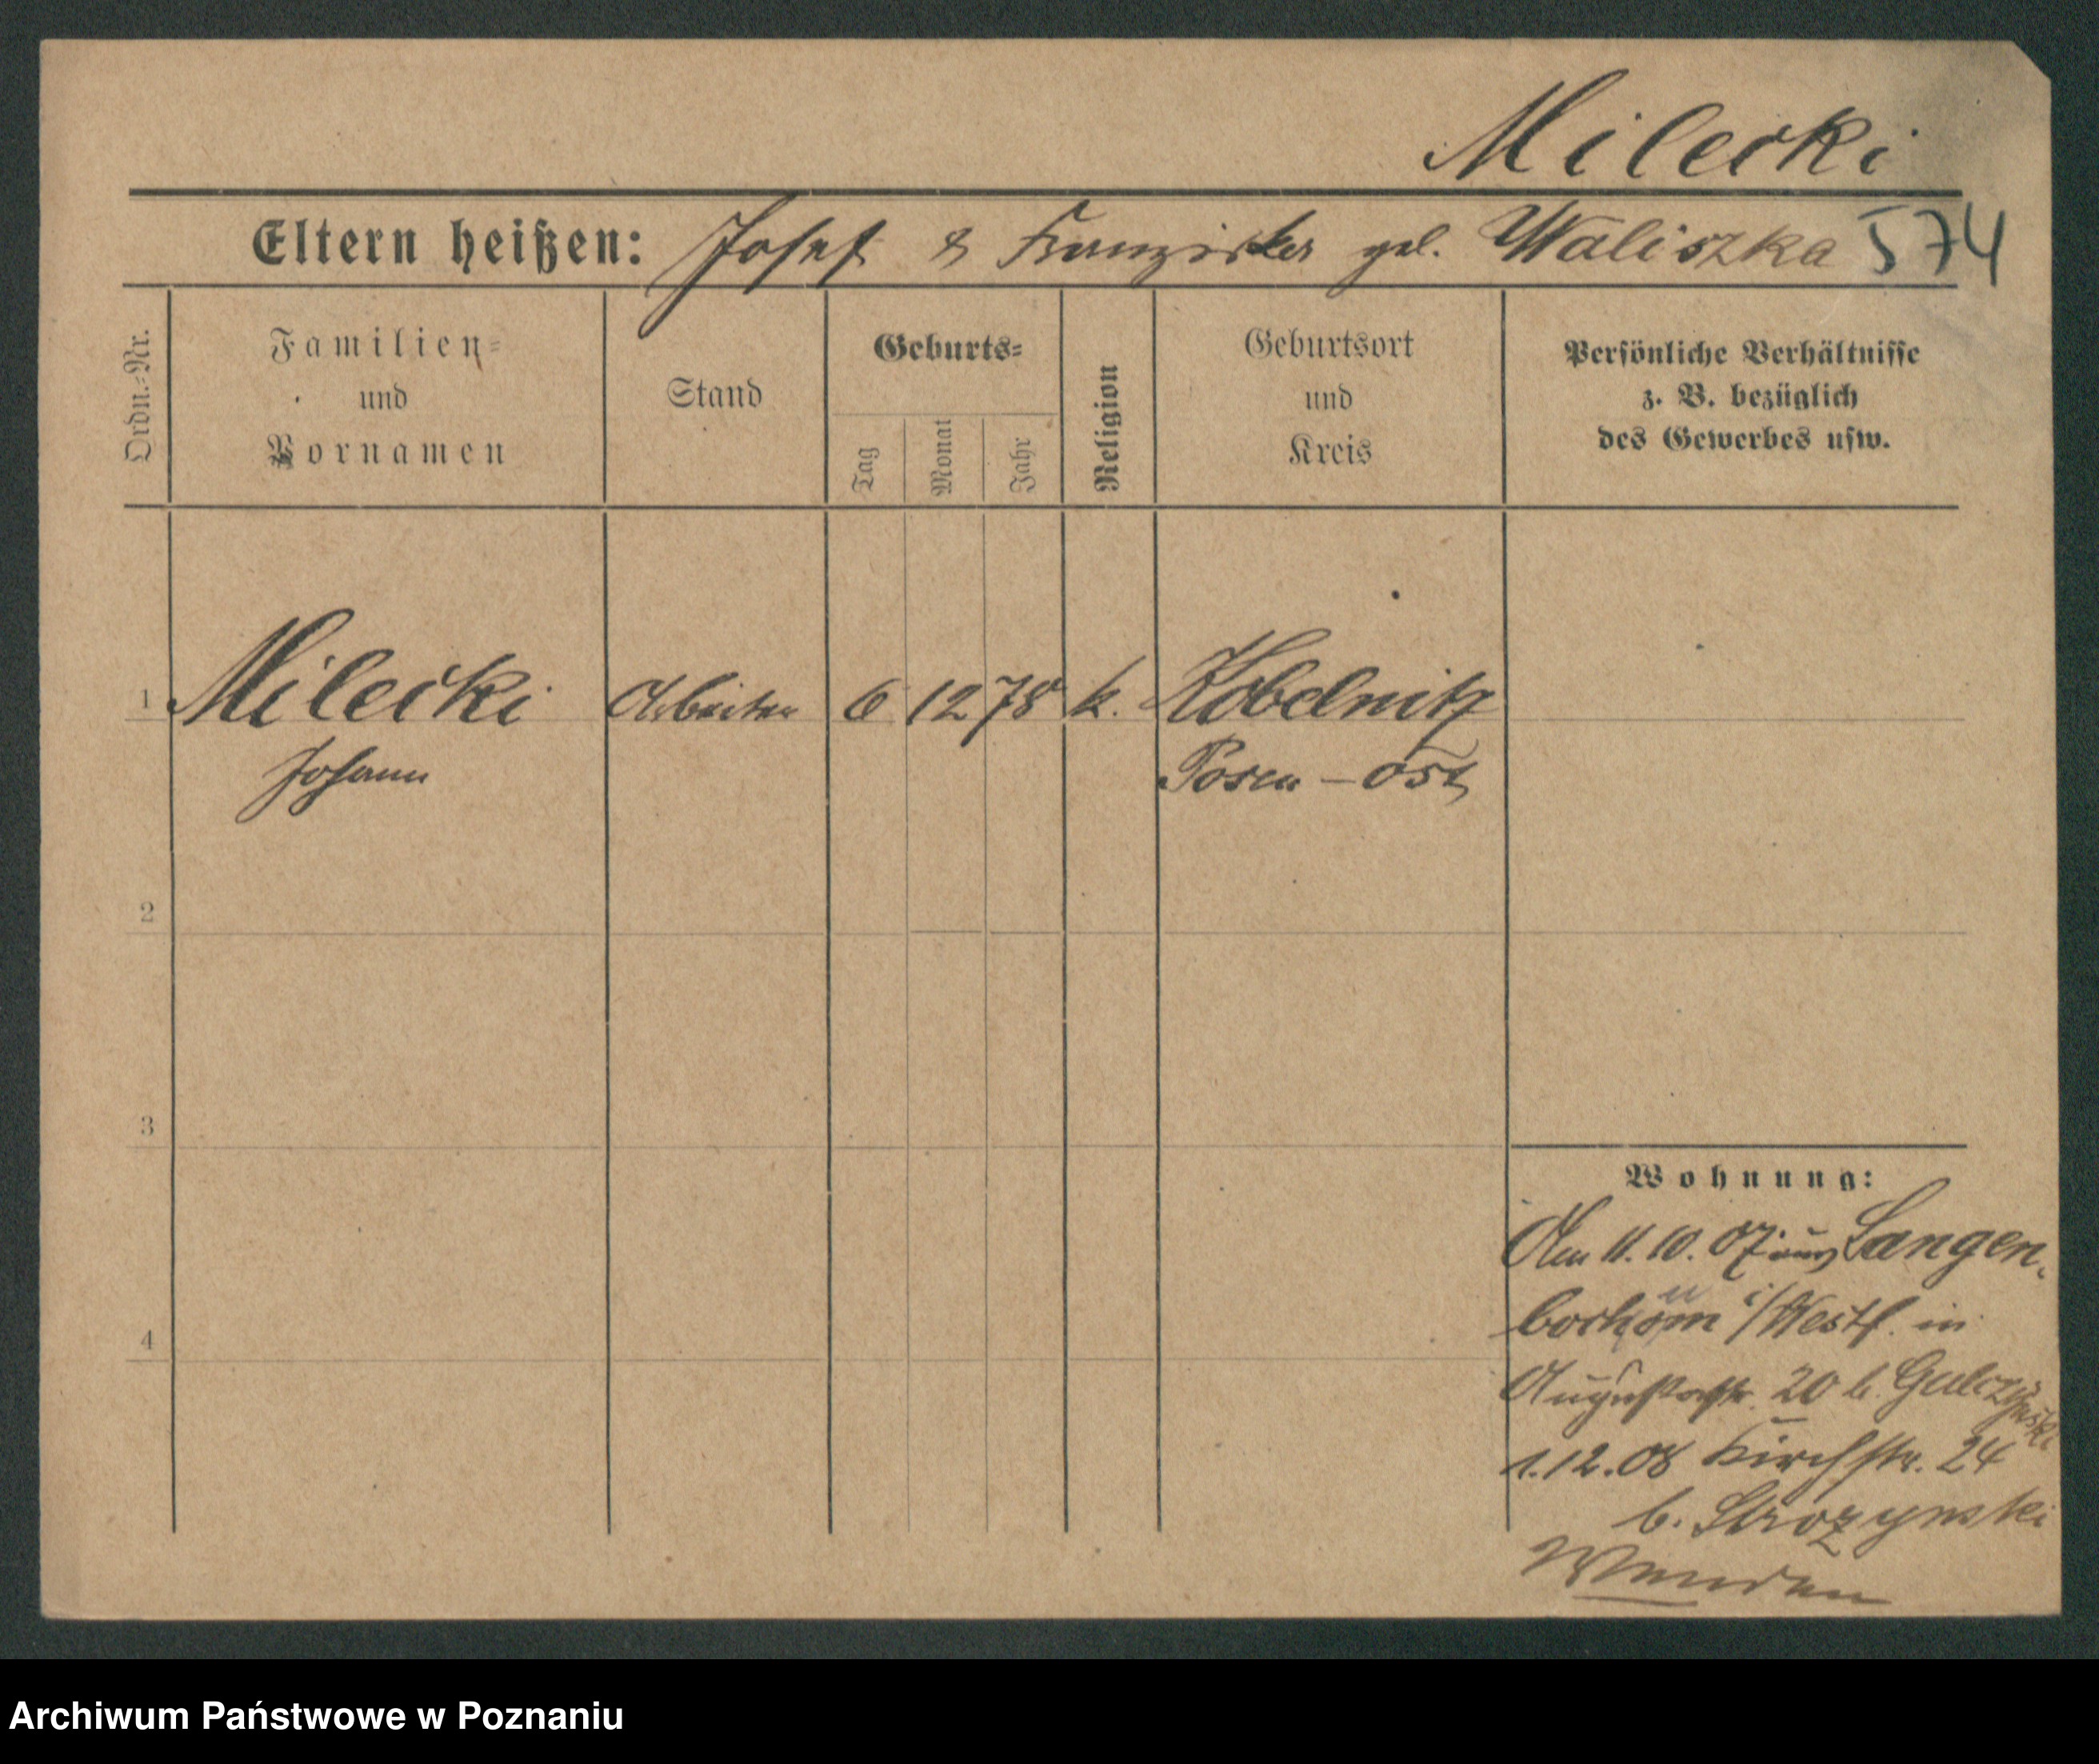 Milecki
Eltern heißen: Josef & Franziska geb. Waliszka 574
Ordn.=Nr.
Familien=
und
Vornamen
Stand
Geburts=
Tag
Monat
Jahr
Religion
Geburtsort
und
Kreis
Persönliche Verhältnisse
z. B. bezüglich
des Gewerbes usw.
1 Milecki Arbeiter 6 12 78 k. Kobelnitz
Johann Posen – Ost
2
3
4
Wohnung:
Am 11. 10. 07 aus Langen-
i/Westf. in
Augustastr. 20 b. Gulczynski
1.12.08 Kirchstr. 24
b. Strozynski
Archiwum Państwowe w Poznaniu